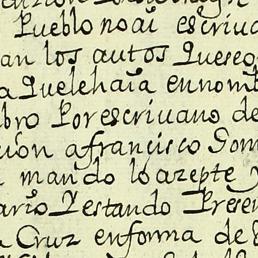 Pueblo no ai escriva
an los autos Quesego
a Quelehaia ennomb
bro Por escriuano de
ción afrancisco Gom
mando lo azepte y
ario Y estando Presen
a Cruz enforma de